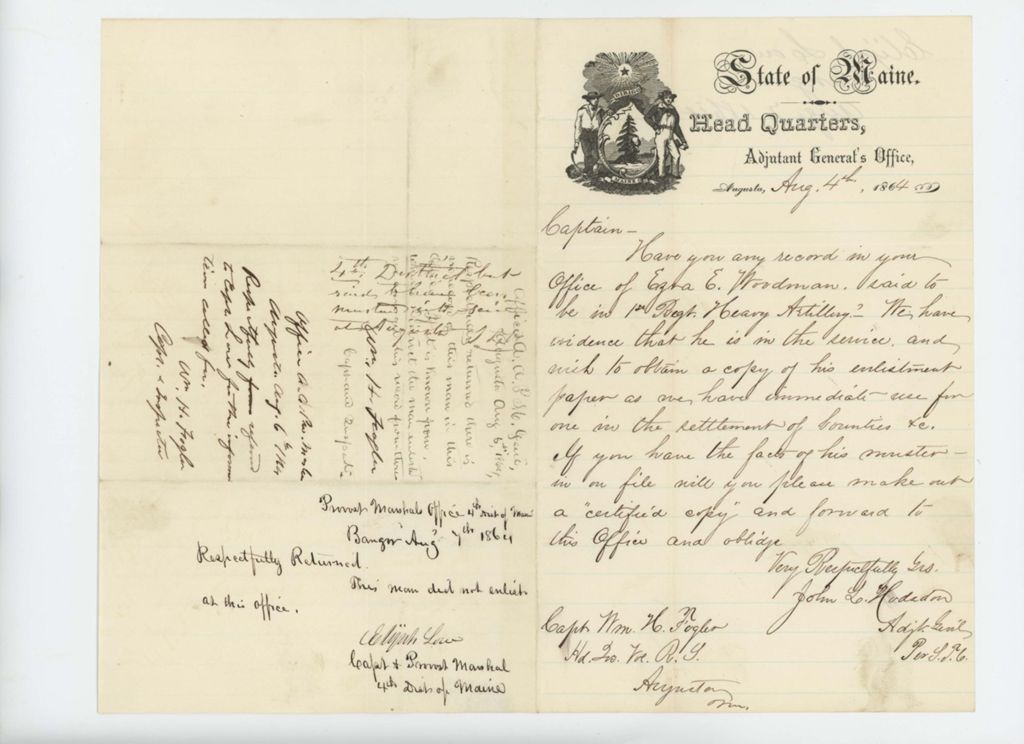 State of Maine.
Head Quarters,
Adjutant General's Office,
Augusta, Aug. 4th, 1864
Captain—
Have you any record in your
Office of Ezra E. Woodman, said to
be in 1st Regt. Heavy Artillery? We have
evidence that he is in the service, and
wish to obtain a copy of his enlistment
paper as we have immediate use for
one in the settlement of bounties &c.
If you have the facts of his muster-
in on file will you please make out
a "certified copy" and forward to
this Office and oblidge
Very Respectfully Yrs.
John L. Hodsdon
Adjt. Genl.
Capt Wm. H. Fogler
Hd. Qrs. Vol. R. S.
Augusta
Me.
Office A. A. P. M. Genl,
Augusta Aug 5th 1864
Respectfully returned there is
this man in this
it is known from
4th District
at Augusta
Wm. H. Fogler
Capt and
Office
Augusta Aug. 6th 1864
Respectfully referred
to Capt Low for the information
called for.
Wm. H. Fogler
Capt. &
Provost Marshals Office 4th Dist of Maine
Bangor Aug 7th 1864
Respectfully Returned.
This man did not enlist
at this office.
Elijah Low
Capt & Provost Marshal
4th Dist of Maine